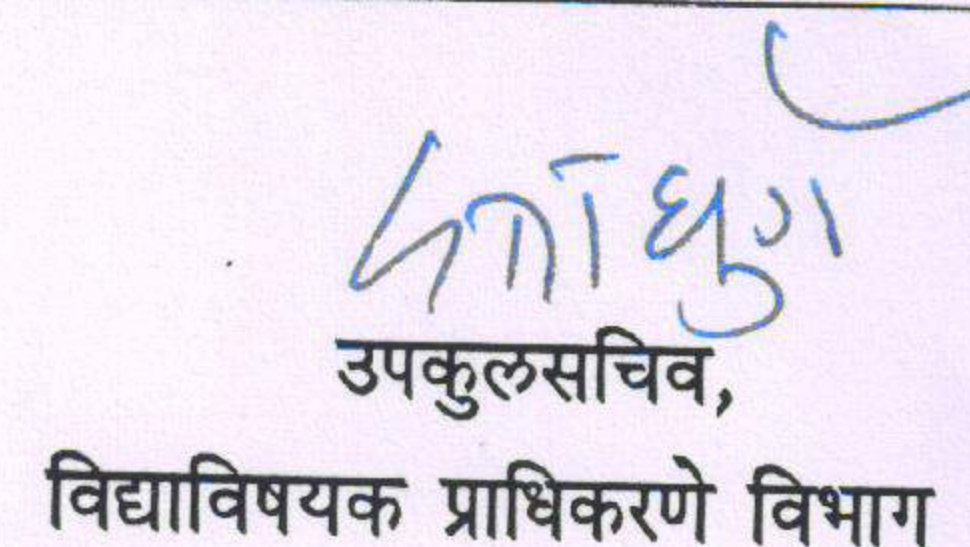 उपकुलसचिव,
विद्याविषयक प्राधिकरणे विभाग